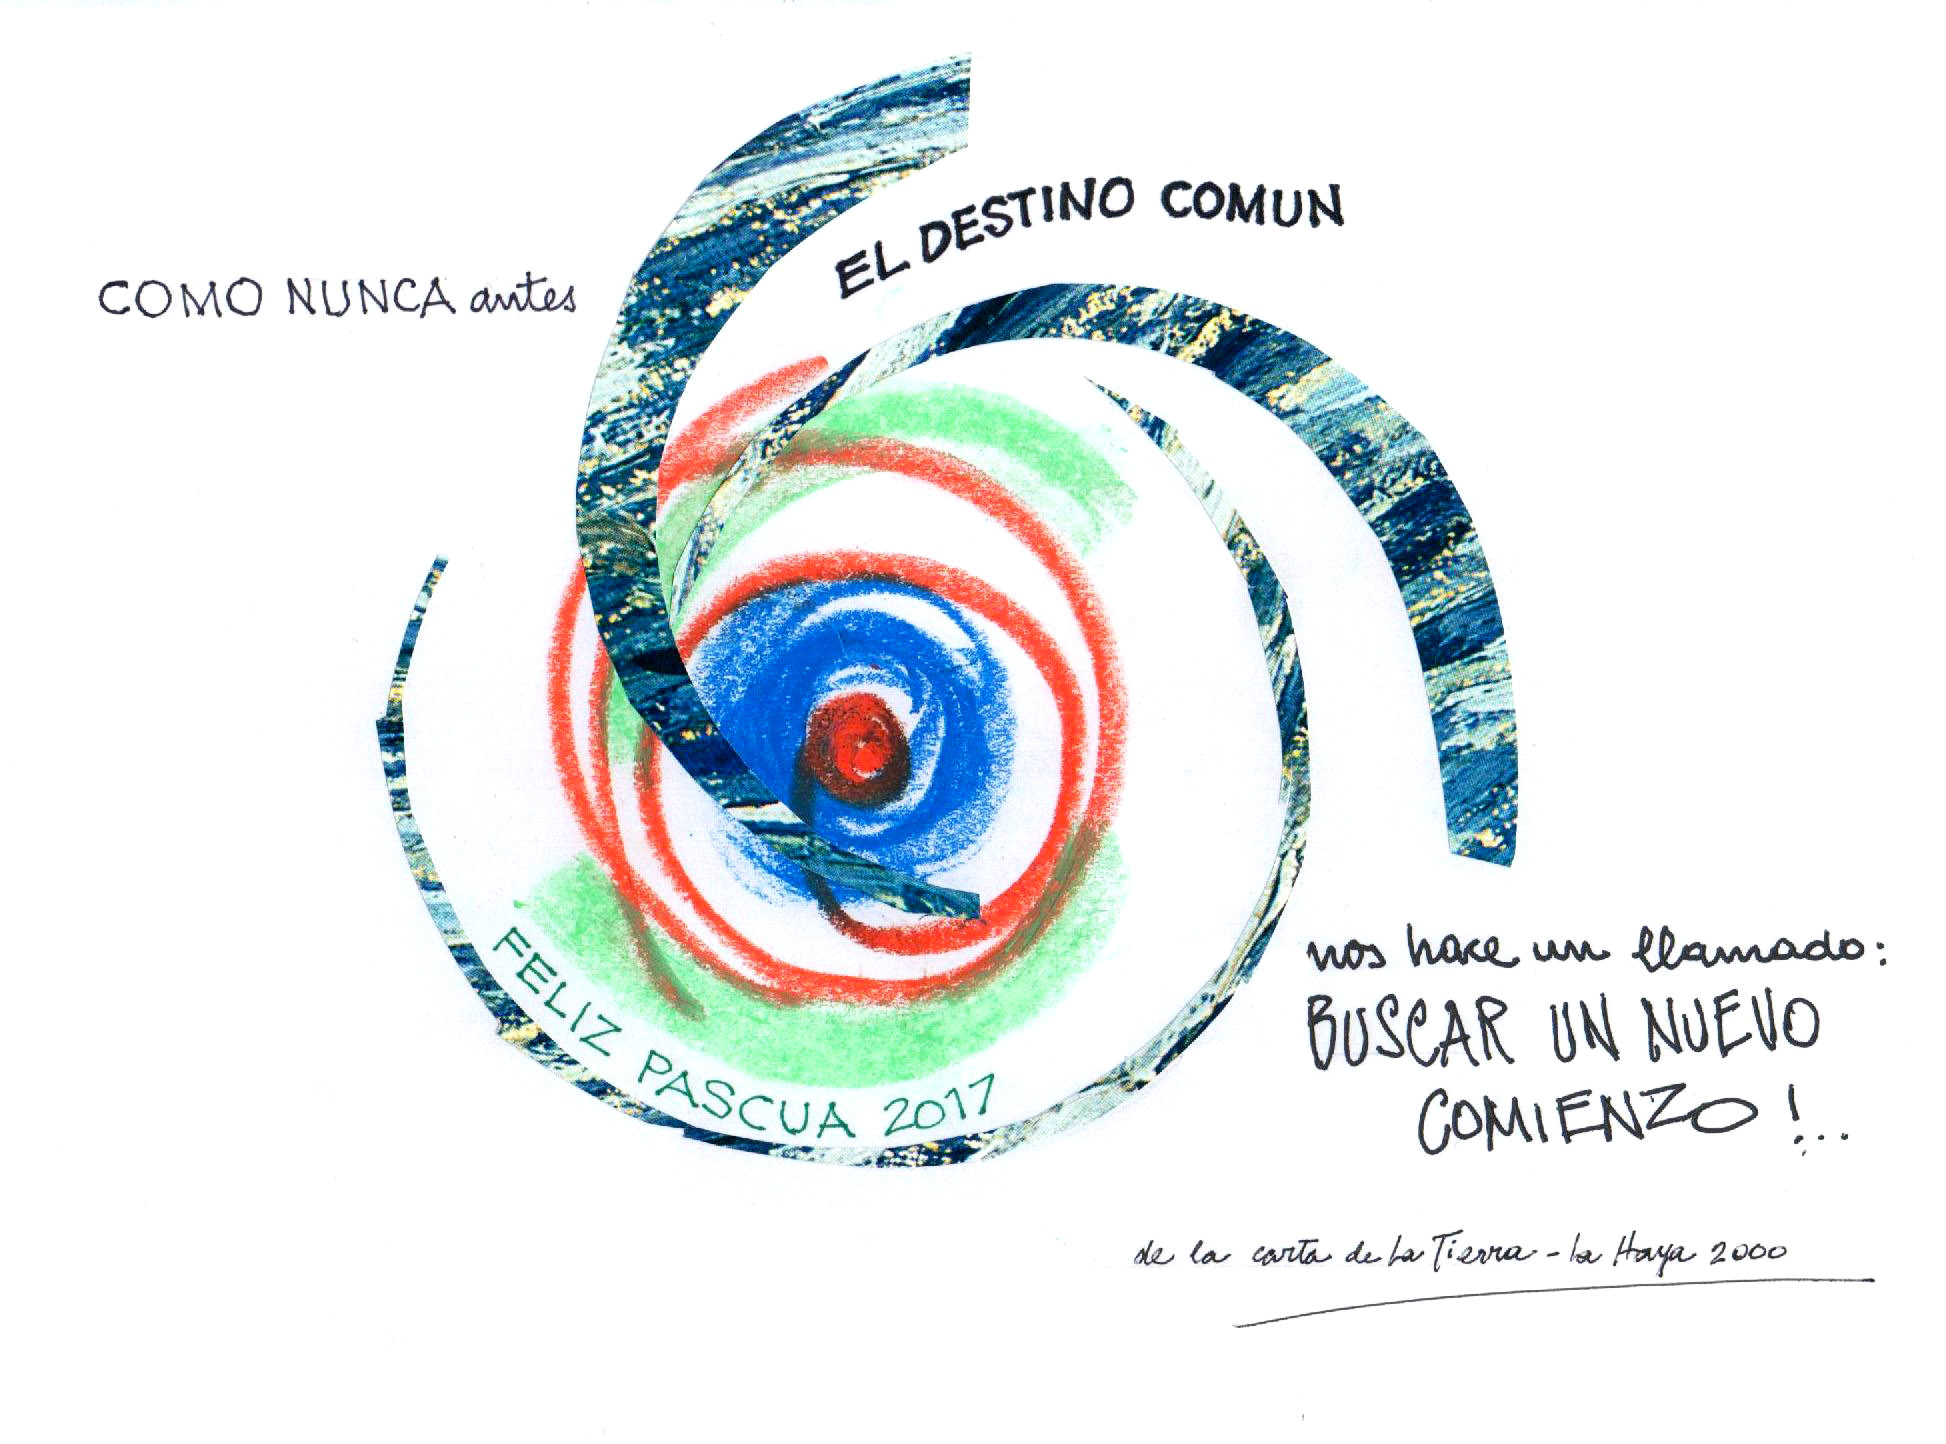 COMO NUNCA antes
EL DESTINO COMUN
nos hace un llamado:
BUSCAR UN NUEVO
COMIENZO !...
FELIZ PASCUA 2017
de la carta de La Tierra - la Haya 2000